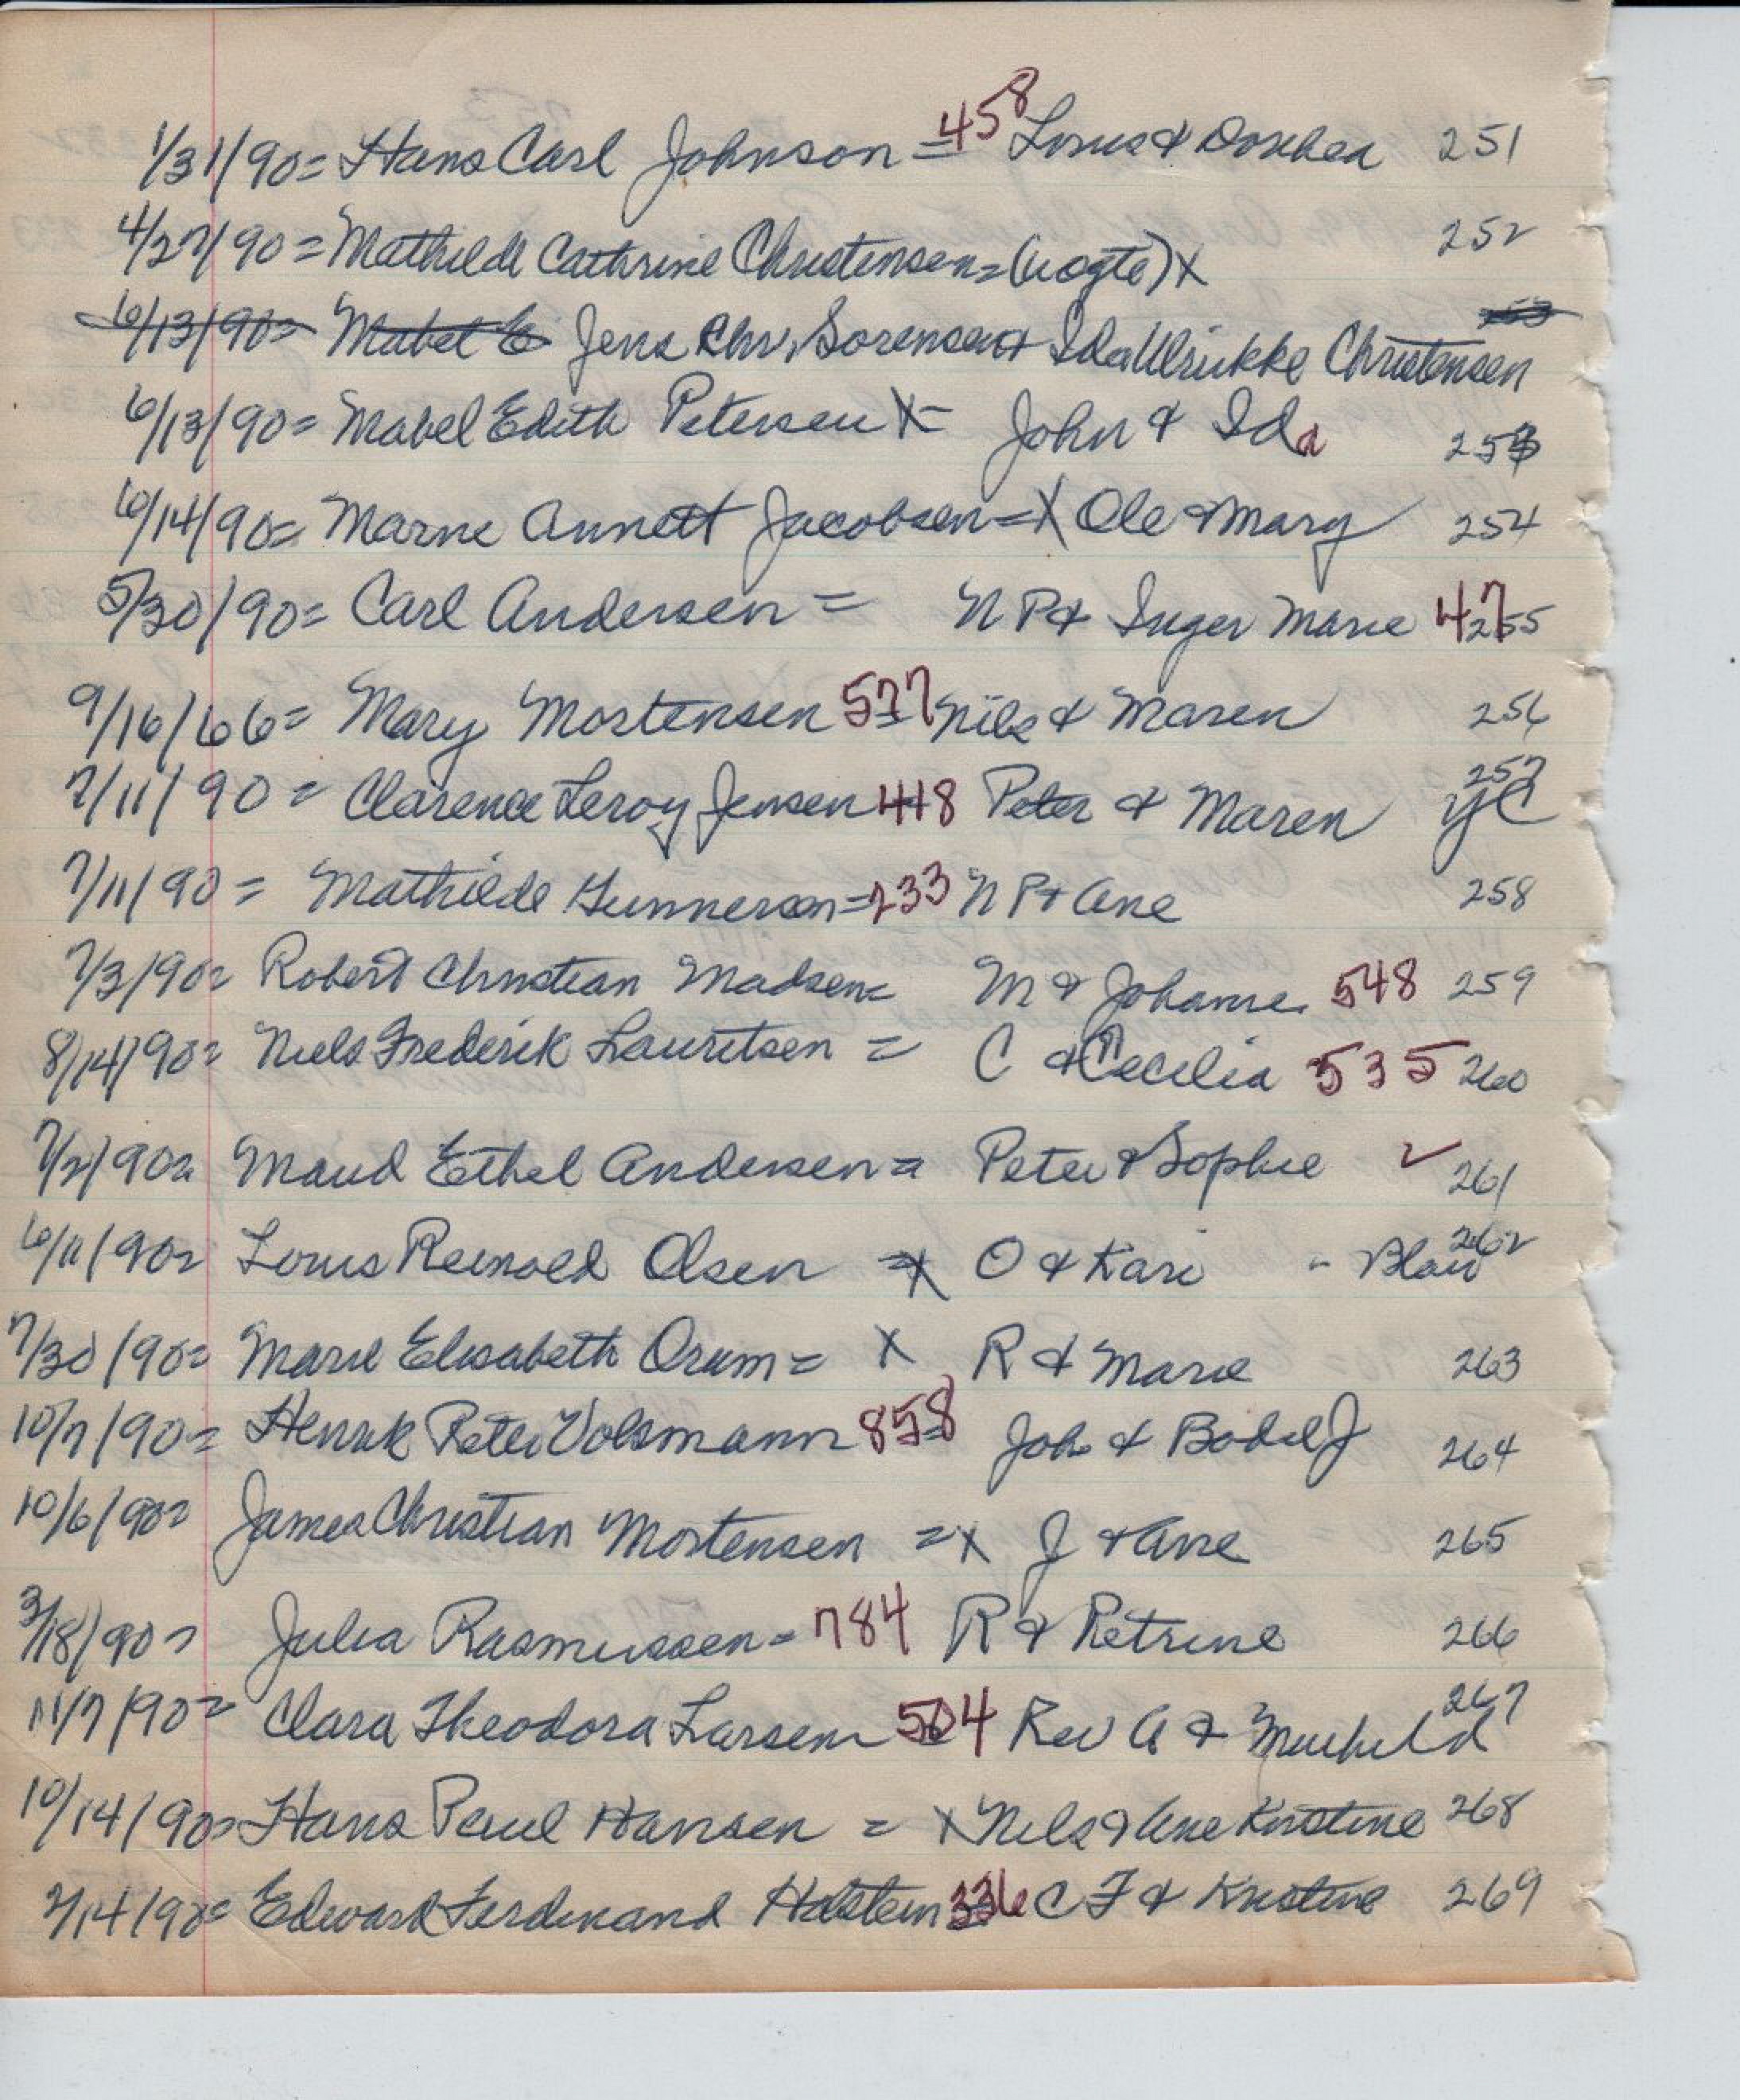 1/31/90= Hans Carl Johnson = 458 Louis & Dorthea 251
4/27/90 = Mathilde Cathrine Christensen = (Vogte) X 252
6/13/90= Mabel E Jens Chr. Sorensen & Ida Ulrikke Christensen 253
6/13/90= Mabel Edith Petersen X= John & Ida 253
6/14/90= Marne Annett Jacobsen = X Ole & Mary 254
5/30/90= Carl Andersen = N P & Inger Marie 47 255
9/16/66= Mary Mortensen 577 = Nils & Maren 256
7/11/90 = Clarence Leroy Jensen 418 Peter & Maren 257
7/11/90 = Mathilde Gunnerson = 233 N P & Ane 258
7/3/90= Robert Christian Madsen = M & Johanne 548 259
8/14/90= Niels Frederik Lauritsen = C & Cecilia 535 260
7/2/90= Maud Ethel Andersen = Peter & Sophie ✓ 261
6/11/90= Louis Reinold Olsen = X O & Kari - Blair 262
7/30/90= Marie Elisabeth Orum = X R & Marie 263
10/7/90= Henrik Peter Volsmann 858 = Joh & Bodil J 264
10/6/90= James Christian Mortensen = X J & Ane 265
3/18/90= Julia Rasmussen = 784 R & Petrine 266
11/7/90= Clara Theodora Larsen 504 Rev A & 267
10/14/90= Hans Paul Hansen = X Nels & Ane Kirstine 268
2/14/90= Edward Ferdinand Holstein 336 C F & Kristine 269